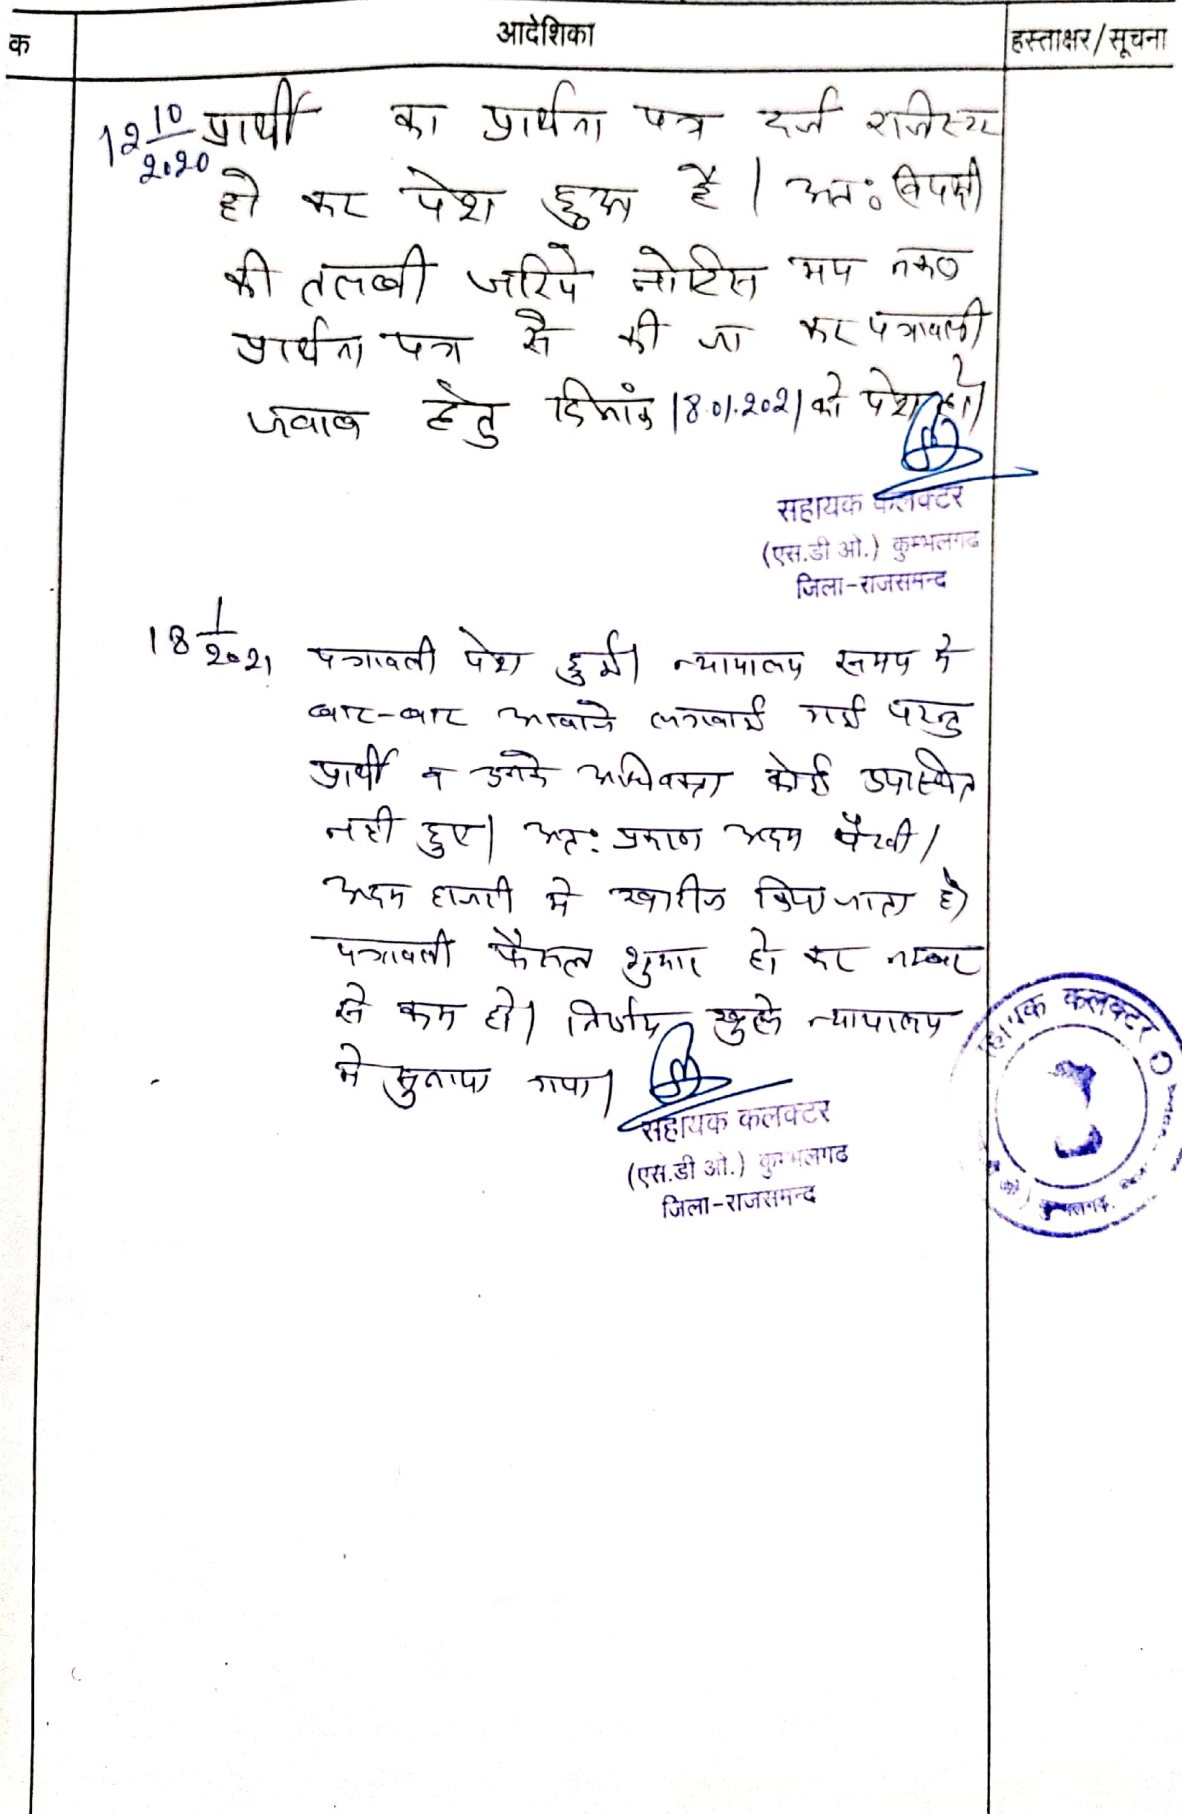 क
आदेशिका
हस्ताक्षर/सूचना
12 10/2020 प्रार्थी का प्रार्थना पत्र दर्ज रजिस्टर
हो कर पेश हुआ है। अतः विपक्षी
की तलबी जरिये नोटिस मय नकल
प्रार्थना पत्र से की जा कर पत्रावली
जवाब हेतु दिनांक 18.01.2021 को पेश हो।
सहायक कलक्टर
(एस.डी ओ.) कुम्भलगढ
जिला-राजसमन्द
18 1/2021 पत्रावली पेश हुई। न्यायालय समय मे
बार-बार आवाजे लगवाई गई परन्तु
प्रार्थी व उनके अधिवक्ता कोई उपस्थित
नही हुए। अतः प्रकरण अदम पैरवी/
अदम हाजरी मे खारीज किया जाता है।
पत्रावली फैसल शुमार हो कर नम्बर
से कम हो। निर्णय खुले न्यायालय
मे सुनाया गया।
सहायक कलक्टर
(एस.डी ओ.) कुम्भलगढ
जिला-राजसमन्द
सहायक कलक्टर
कुम्भलगढ